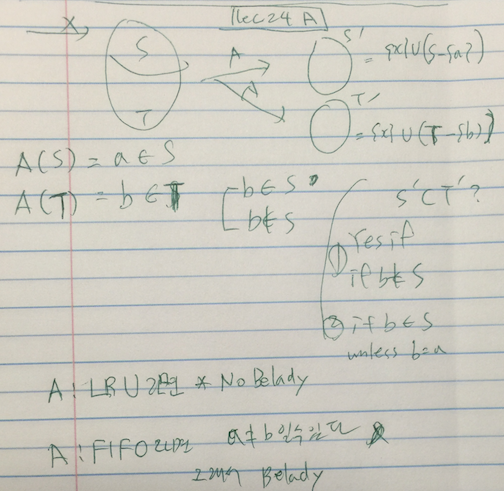 lec24 A
x
S
T
A
A
S' = {x} ∪ (S-{a})
T' = {x} ∪ (T-{b})
A(S) = a ∈ S
A(T) = b ∈ T
b ∈ S
b ∉ S
S' ⊂ T' ?
① Yes if
if b ∉ S
② if b ∈ S
unless b=a
A: LRU 라면 * No Belady
A: FIFO 라면 a ≠ b 일수있다
그래서 Belady